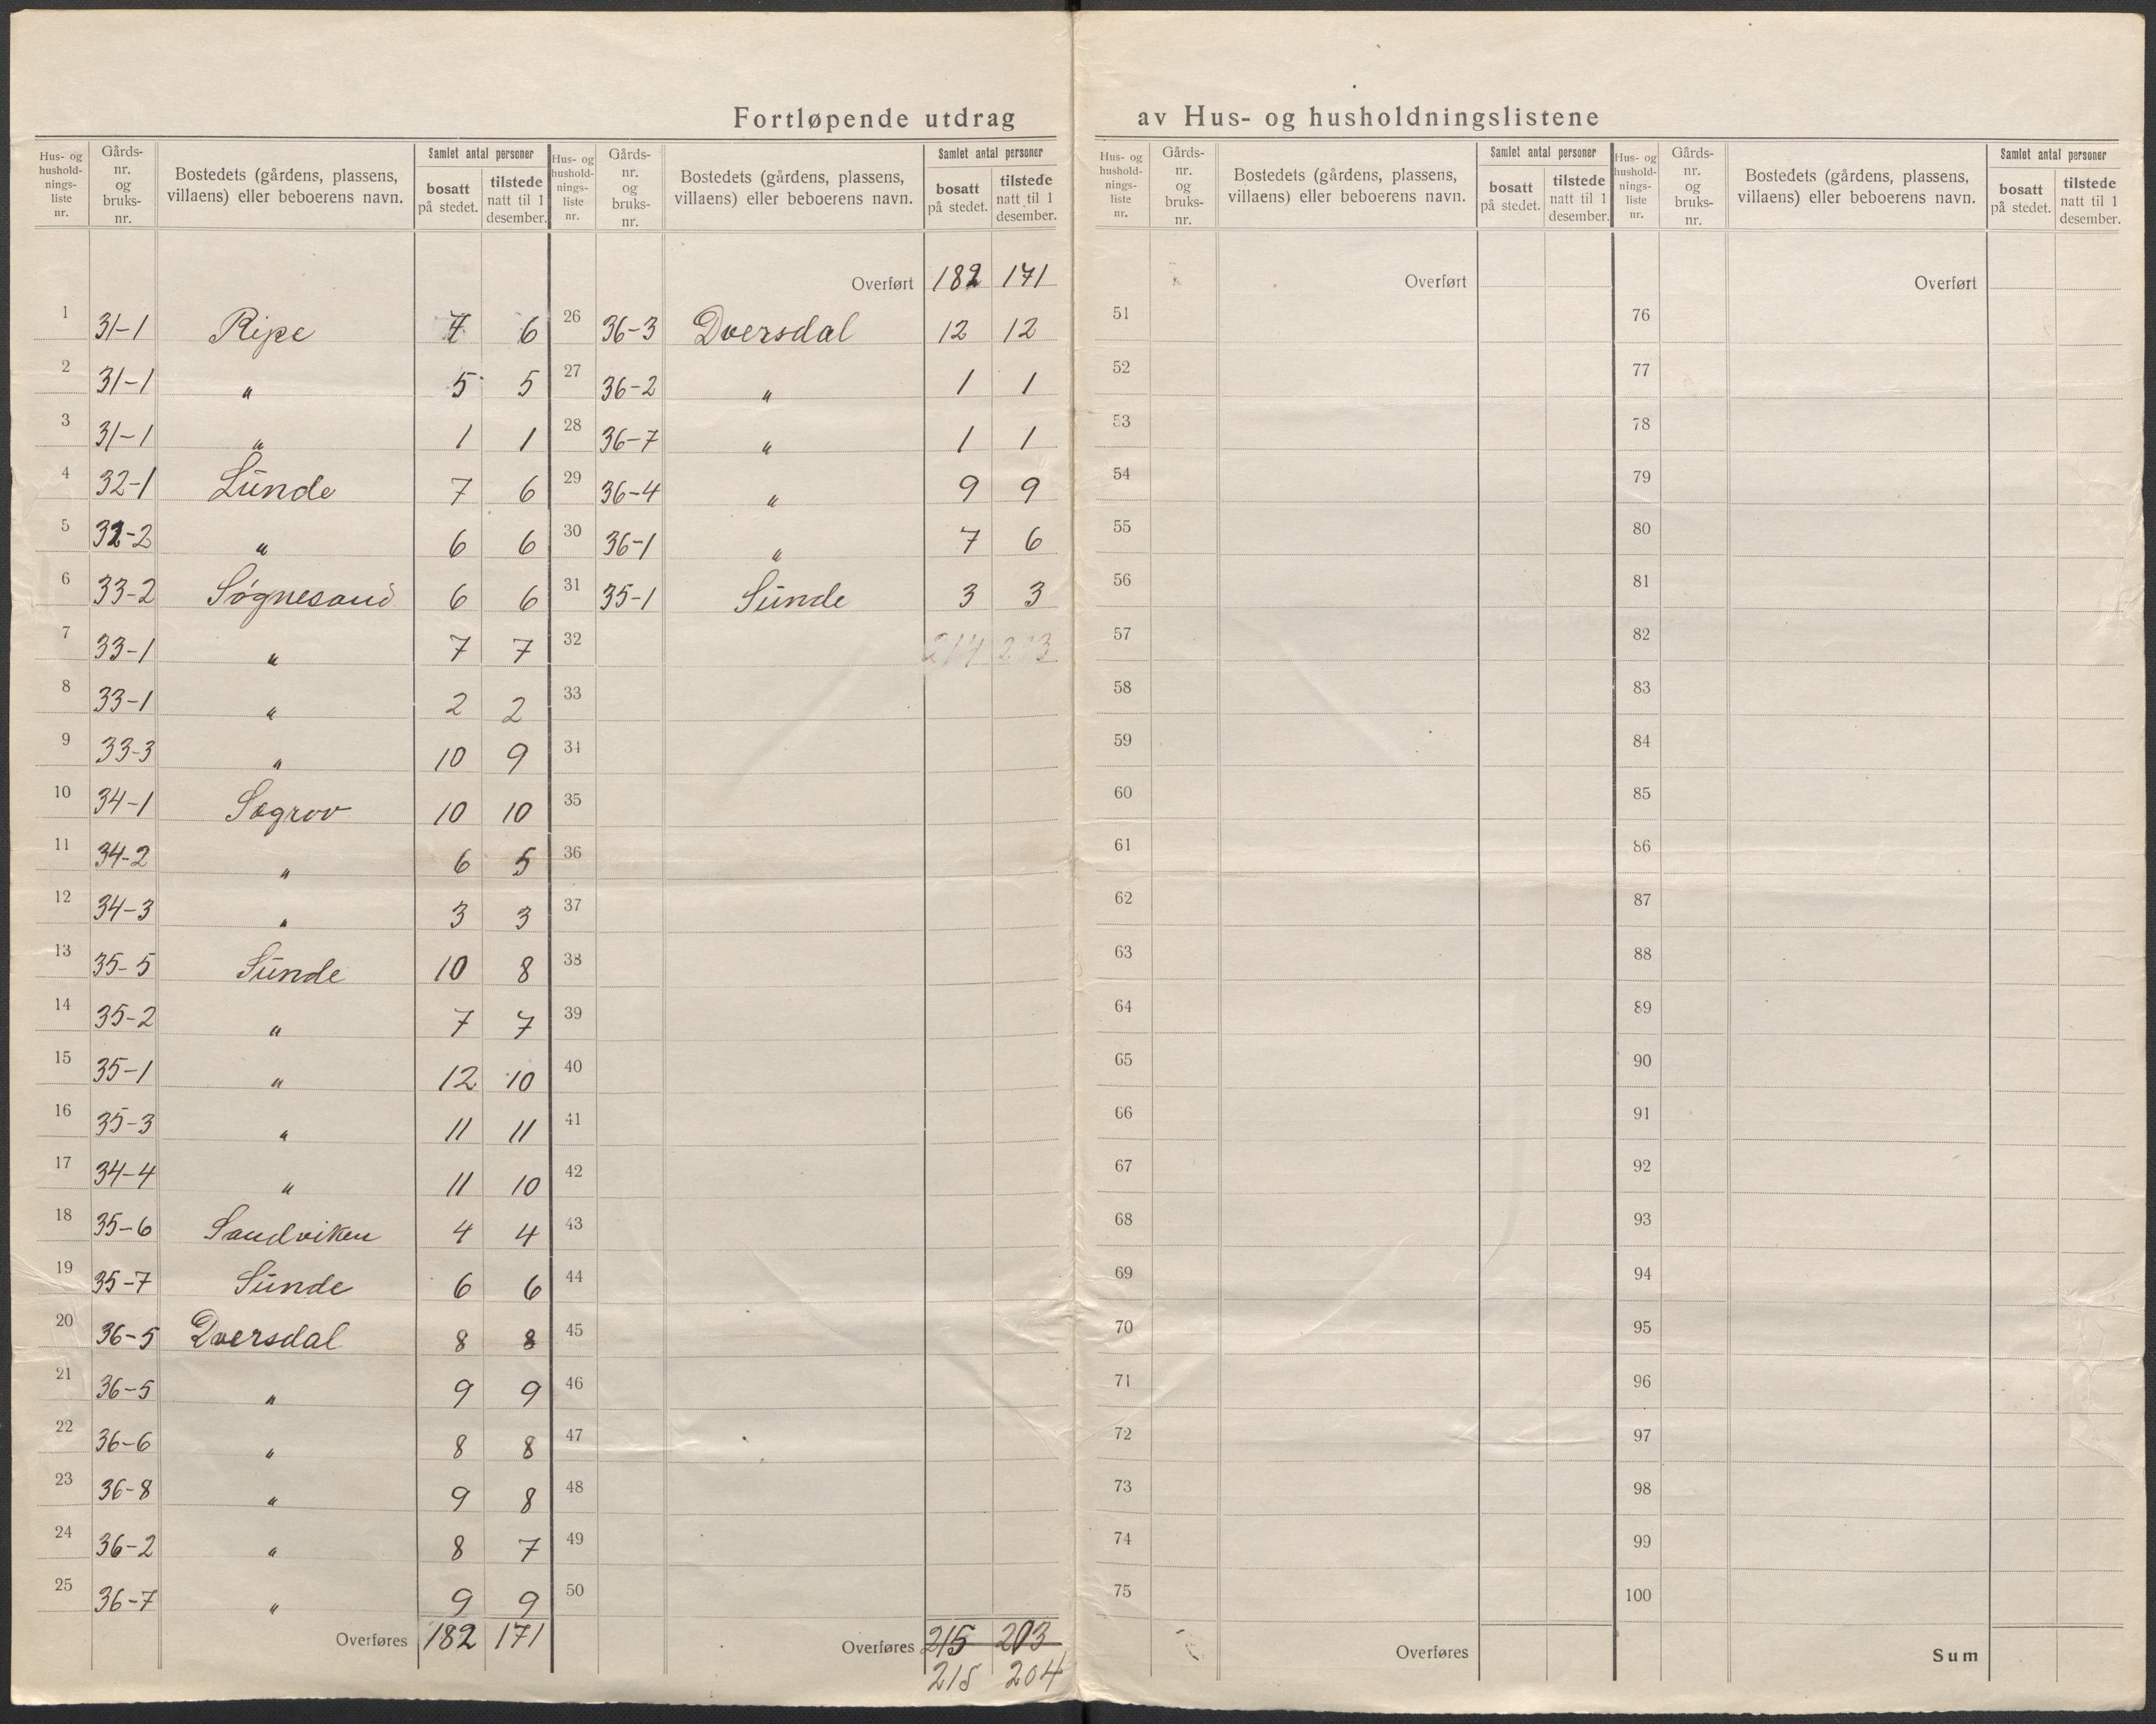 Fortløpende utdrag av Hus- og husholdningslistene
Hus- og hushold-nings-liste nr. | Gårds-nr. og bruks-nr. | Bostedets (gårdens, plassens, villaens) eller beboerens navn. | Samlet antal personer | bosatt på stedet. | tilstede natt til 1 desember.
1 31-1 Ripe 7 6
2 31-1 " 5 5
3 31-1 " 1 1
4 32-1 Lunde 7 6
5 32-2 " 6 6
6 33-2 Søgnesand 6 6
7 33-1 " 7 7
8 33-1 " 2 2
9 33-3 " 10 9
10 34-1 Søgrov 10 10
11 34-2 " 6 5
12 34-3 " 3 3
13 35-5 Sunde 10 8
14 35-2 " 7 7
15 35-1 " 12 10
16 35-3 " 11 11
17 34-4 " 11 10
18 35-6 Sandviken 4 4
19 35-7 Sunde 6 6
20 36-5 Dversdal 8 8
21 36-5 " 9 9
22 36-6 " 8 8
23 36-8 " 9 8
24 36-2 " 8 7
25 36-7 " 9 9
Overføres 182 171
Hus- og hushold-nings-liste nr. | Gårds-nr. og bruks-nr. | Bostedets (gårdens, plassens, villaens) eller beboerens navn. | Samlet antal personer | bosatt på stedet. | tilstede natt til 1 desember.
Overført 182 171
26 36-3 Dversdal 12 12
27 36-2 " 1 1
28 36-7 " 1 1
29 36-4 " 9 9
30 36-1 " 7 6
31 35-1 Sunde 3 3
32 214 203
33
34
35
36
37
38
39
40
41
42
43
44
45
46
47
48
49
50
Overføres 215 203
215 204
Hus- og hushold-nings-liste nr. | Gårds-nr. og bruks-nr. | Bostedets (gårdens, plassens, villaens) eller beboerens navn. | Samlet antal personer | bosatt på stedet. | tilstede natt til 1 desember.
Overført
51
52
53
54
55
56
57
58
59
60
61
62
63
64
65
66
67
68
69
70
71
72
73
74
75
Overføres
Hus- og hushold-nings-liste nr. | Gårds-nr. og bruks-nr. | Bostedets (gårdens, plassens, villaens) eller beboerens navn. | Samlet antal personer | bosatt på stedet. | tilstede natt til 1 desember.
Overført
76
77
78
79
80
81
82
83
84
85
86
87
88
89
90
91
92
93
94
95
96
97
98
99
100
Sum